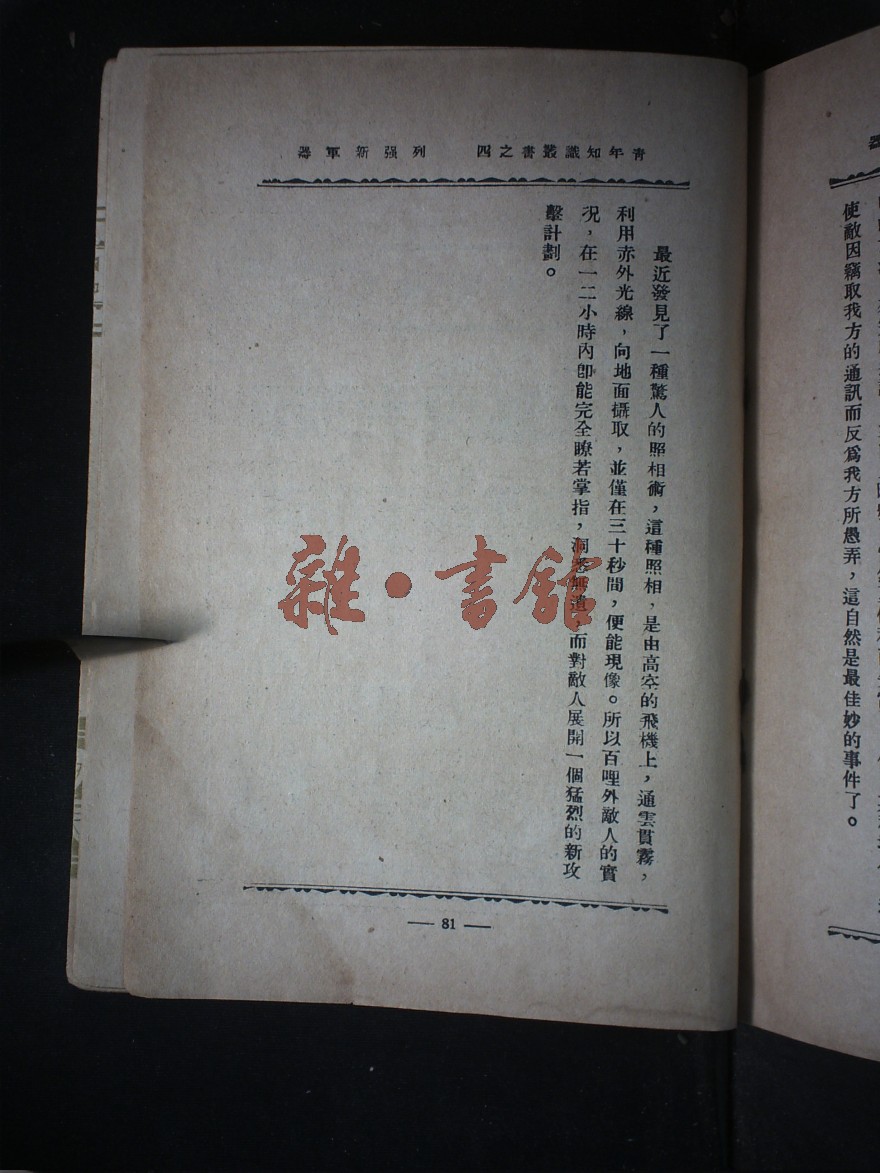 使敵因竊取我方的通訊而反爲我方所愚弄，這自然是最佳妙的事件了。
青年知識叢書之四　列强新軍器
最近發見了一種驚人的照相術，這種照相，是由高空的飛機上，通雲貫霧，
利用赤外光線，向地面攝取，並僅在三十秒間，便能現像。所以百哩外敵人的實
況，在一二小時內卽能完全瞭若掌指，洞悉無遺，而對敵人展開一個猛烈的新攻
擊計劃。
— 81 —
雜·書館